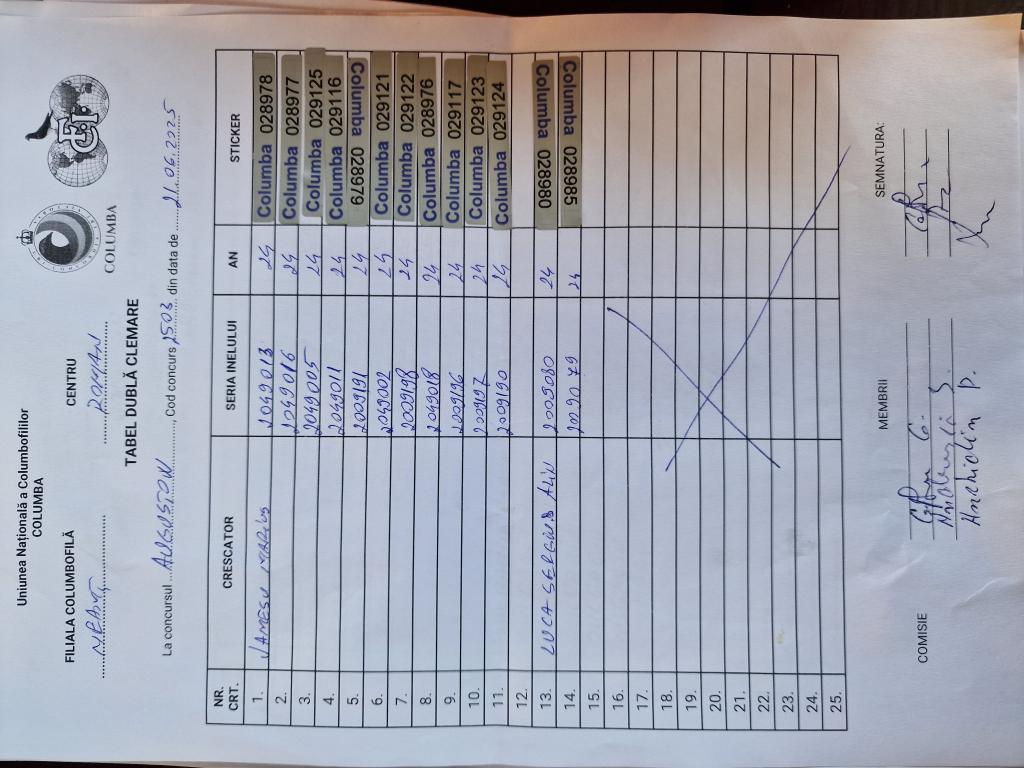 Uniunea Națională a Columbofililor
COLUMBA
FILIALA COLUMBOFILĂ CENTRU
NEAMȚ ROMAN
COLUMBA
TABEL DUBLĂ CLEMARE
La concursul ... , Cod concurs 25.03 din data de 21.06.2025
NR. CRT. CRESCATOR SERIA INELULUI AN STICKER
1. IAMESU MARIUS 2049013 24 Columba 028978
2. 2049016 24 Columba 028977
3. 2049005 24 Columba 029125
4. 2049011 24 Columba 029116
5. 2009191 24 Columba 028979
6. 2049002 24 Columba 029121
7. 2009198 24 Columba 029122
8. 2049018 24 Columba 028976
9. 2009196 24 Columba 029117
10. 2009197 24 Columba 029123
11. 2009190 24 Columba 029124
12.
13. LUCA SERGIU ALIN 2009080 24 Columba 028980
14. 2009079 24 Columba 028985
15.
16.
17.
18.
19.
20.
21.
22.
23.
24.
25.
COMISIE MEMBRII SEMNATURA: